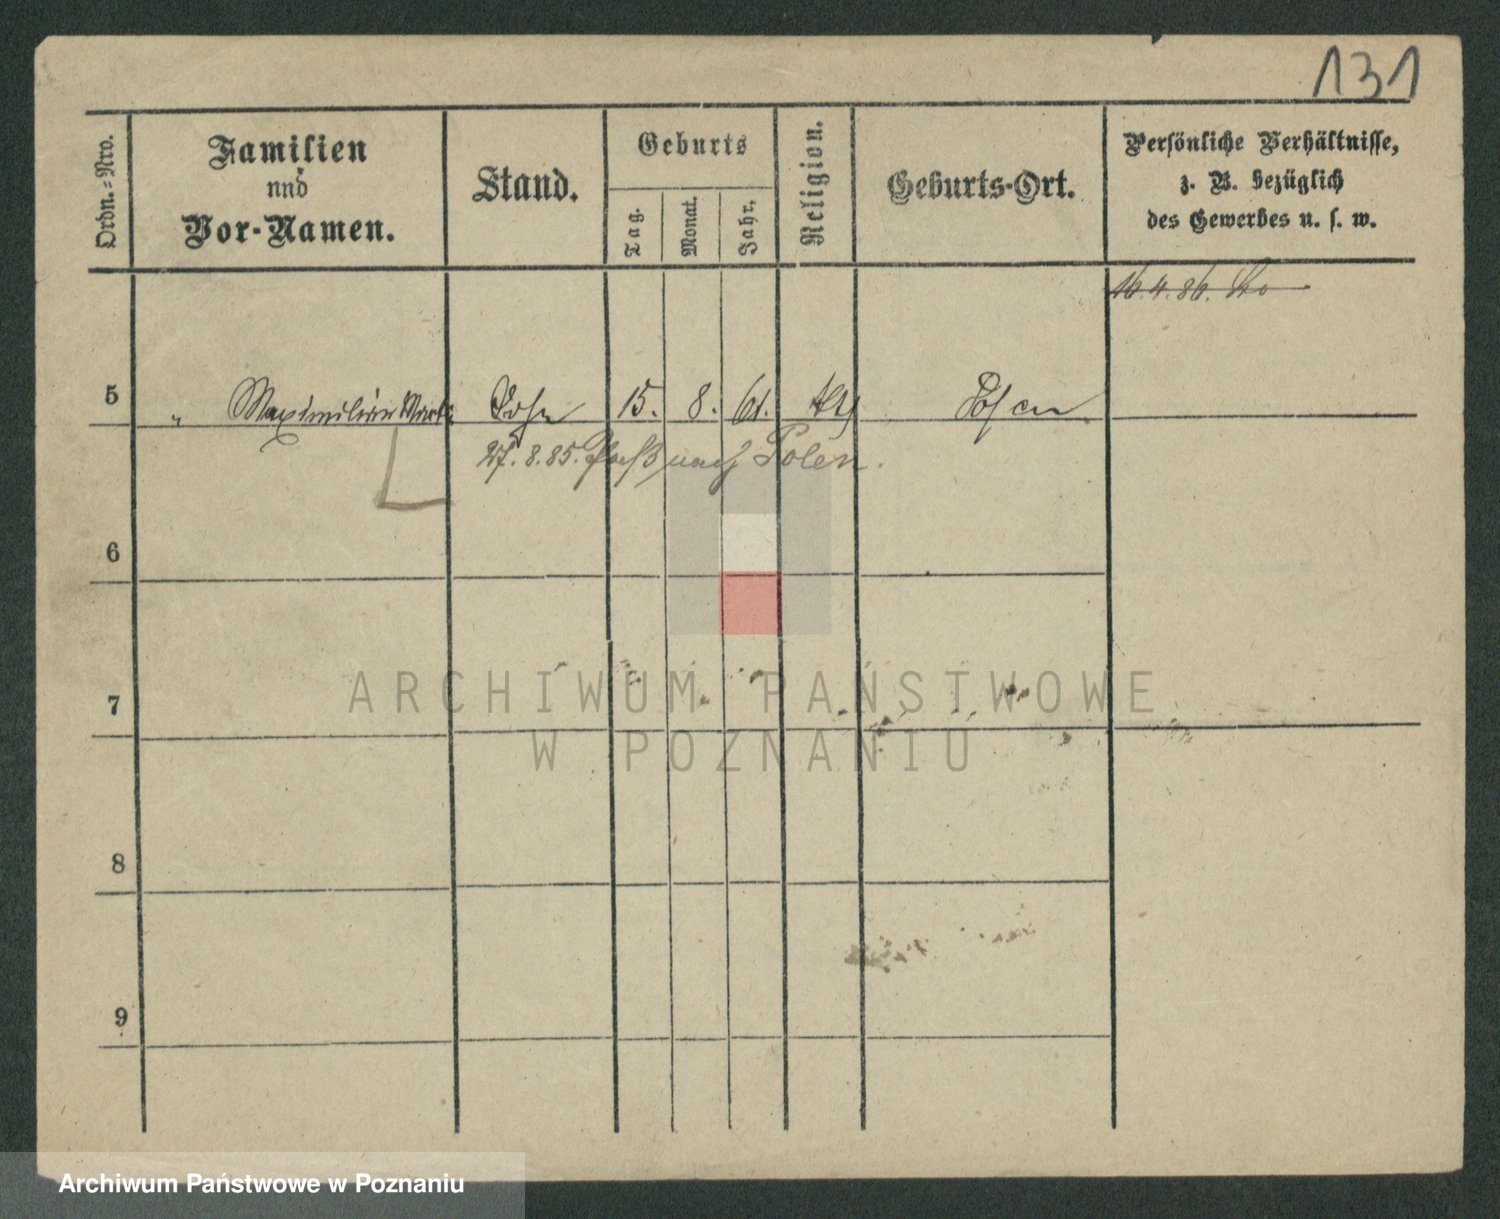 131
Ordn.-Nro.
Familien
und
Vor-Namen.
Stand.
Geburts
Tag.
Monat.
Jahr.
Religion.
Geburts-Ort.
Persönliche Verhältnisse,
z. B. bezüglich
des Gewerbes u. s. w.
16.4.86.
5 " Maximilian Sohn 15. 8. 61. kth Posen
27.8.85. Paß nach Polen.
6
7
8
9
ARCHIWUM PAŃSTWOWE
W POZNANIU
Archiwum Państwowe w Poznaniu